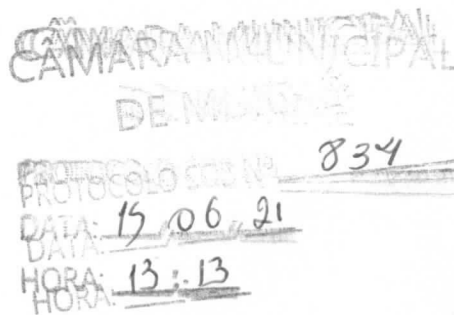 CÂMARA MUNICIPAL
DE
PROTOCOLO Nº 834
DATA: 15/06/21
HORA: 13:13